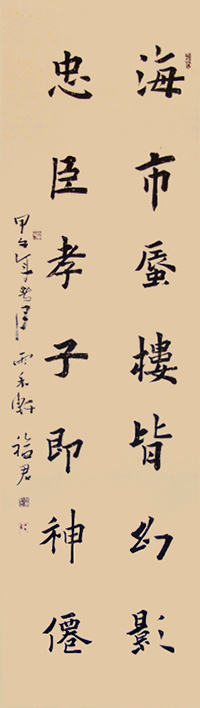 海市蜃樓皆幻影
忠臣孝子即神僊
甲午年
福君